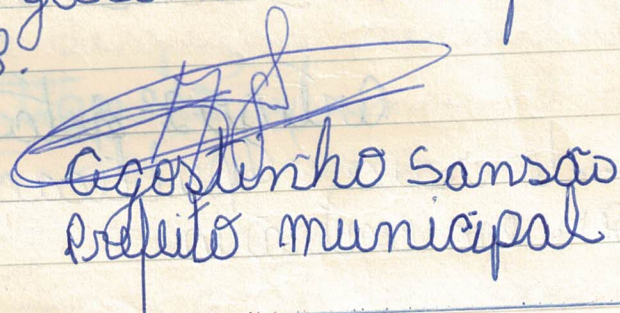 Agostinho Sansão
Prefeito municipal